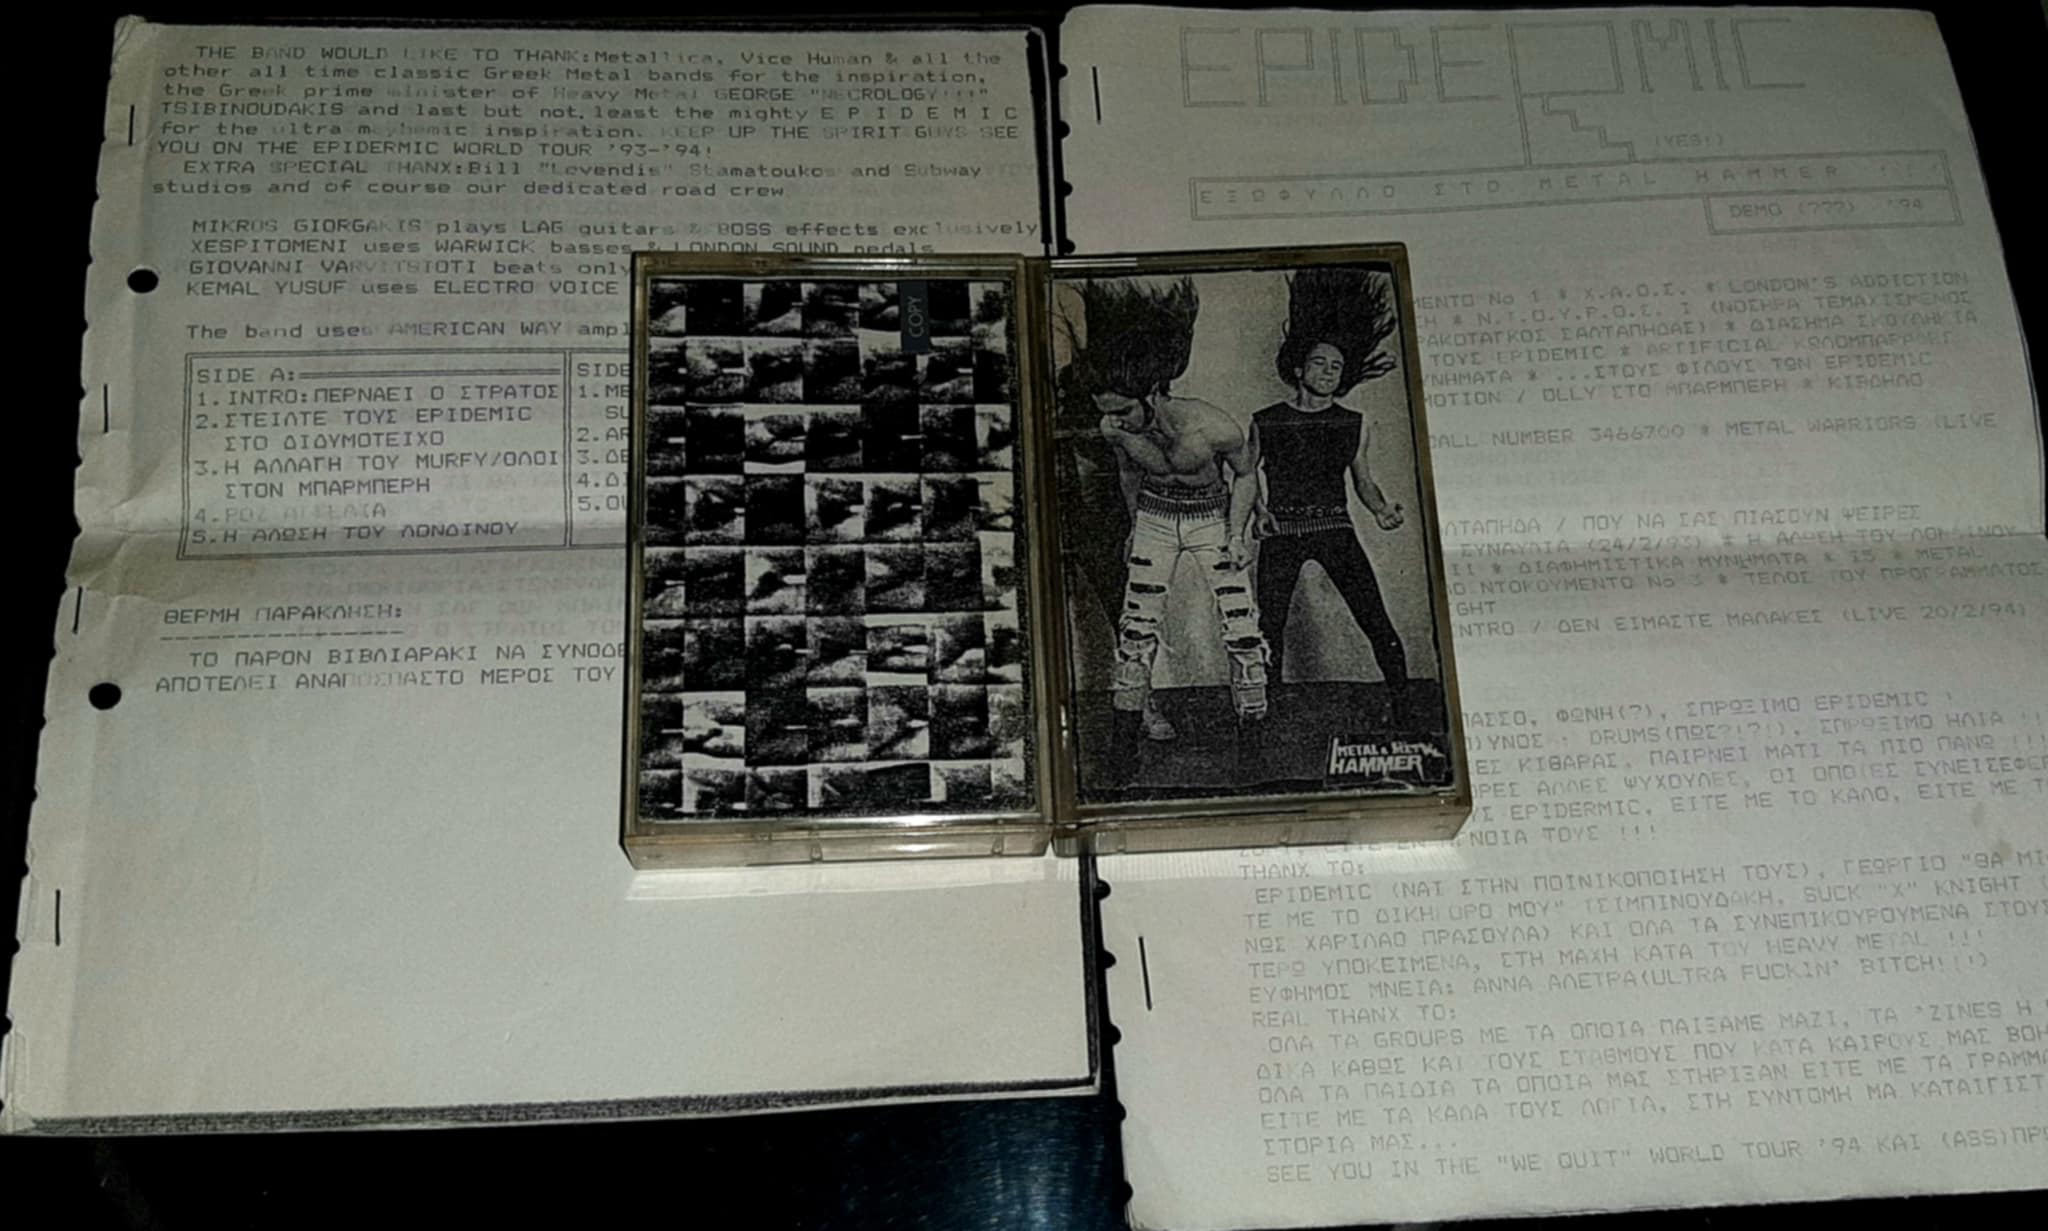 THE BAND WOULD LIKE TO THANK:Metallica, Vice Human & all the
other all time classic Greek Metal bands for the inspiration,
the Greek prime minister of Heavy Metal GEORGE "NECROLOGY!!!"
TSIBINOUDAKIS and last but not, least the mighty E P I D E M I C
for the ultra mayhemic inspiration. KEEP UP THE SPIRIT GUYS SEE
YOU ON THE EPIDERMIC WORLD TOUR '93-'94!
EXTRA SPECIAL THANX:Bill "Levendis" Stamatoukos and Subway
studios and of course our dedicated road crew.
MIKROS GIORGAKIS plays LAG guitars & BOSS effects exclusively
XESPITOMENI uses WARWICK basses & LONDON SOUND pedals
GIOVANNI VARVITSIOTI beats only
KEMAL YUSUF uses ELECTRO VOICE
The band uses AMERICAN WAY ampl
SIDE A:
1.INTRO:ΠΕΡΝΑΕΙ Ο ΣΤΡΑΤΟΣ
2.ΣΤΕΙΛΤΕ ΤΟΥΣ EPIDEMIC
ΣΤΟ ΔΙΔΥΜΟΤΕΙΧΟ
3.Η ΑΛΛΑΓΗ ΤΟΥ MURFY/ΟΛΟΙ
ΣΤΟΝ ΜΠΑΡΜΠΕΡΗ
4.ΡΟΖ
5.Η ΑΛΩΣΗ ΤΟΥ ΛΟΝΔΙΝΟΥ
SIDE
1.ME
SU
2.AR
3.ΔΕ
4.Δ
5.OU
ΘΕΡΜΗ ΠΑΡΑΚΛΗΣΗ:
ΤΟ ΠΑΡΟΝ ΒΙΒΛΙΑΡΑΚΙ ΝΑ ΣΥΝΟΔΕ
ΑΠΟΤΕΛΕΙ ΑΝΑΠΟΣΠΑΣΤΟ ΜΕΡΟΣ ΤΟΥ
COPY
METAL & HEAVY
METAL HAMMER
EPIDERMIC
(YES!)
ΕΞΩΦΥΛΛΟ ΣΤΟ METAL HAMMER !!!
DEMO (???) '94
ΜΕΝΤΟ No 1 * Χ.Α.Ο.Σ. * LONDON'S ADDICTION
Ν.Τ.Ο.Υ.Ρ.Ο.Σ. Ι (ΝΟΣΗΡΑ ΤΕΜΑΧΙΣΜΕΝΟΣ
ΡΑΚΟΤΑΓΚΟΣ ΣΑΛΤΑΠΗΔΑΣ) * ΔΙΑΣΗΜΑ ΣΚΟΥΛΗΚΙΑ
ΤΟΥΣ EPIDEMIC * ARTIFICIAL ΚΩΛΟΜΠΑΡΡΑΚΙ
ΥΝΗΜΑΤΑ * ...ΣΤΟΥΣ ΦΙΛΟΥΣ ΤΩΝ EPIDEMIC
MOTION / OLLY ΣΤΟ ΜΠΑΡΜΠΕΡΗ * ΚΙΒΔΗΛΟ
CALL NUMBER 3466700 * METAL WARRIORS (LIVE
ΛΤΑΠΗΔΑ / ΠΟΥ ΝΑ ΣΑΣ ΠΙΑΣΟΥΝ ΨΕΙΡΕΣ
ΣΥΝΑΥΛΙΑ (24/2/93) * Η ΑΛΩΣΗ ΤΟΥ ΛΟΝΔΙΝΟΥ
II * ΔΙΑΦΗΜΙΣΤΙΚΑ ΜΥΝΗΜΑΤΑ * 15 * METAL
ΝΤΟΚΟΥΜΕΝΤΟ No 3 * ΤΕΛΟΣ ΤΟΥ ΠΡΟΓΡΑΜΜΑΤΟΣ
IGHT
NTRO / ΔΕΝ ΕΙΜΑΣΤΕ ΜΑΛΑΚΕΣ (LIVE 20/2/94)
ΠΑΣΣΟ, ΦΩΝΗ(?), ΣΠΡΩΞΙΜΟ EPIDEMIC !
)ΥΝΟΣ : DRUMS(ΠΩΣ?!?!), ΣΠΡΩΞΙΜΟ ΗΛΙΑ !!
ΕΣ ΚΙΘΑΡΑΣ, ΠΑΙΡΝΕΙ ΜΑΤΙ ΤΑ ΠΙΟ ΠΑΝΩ !!!
ΟΡΕΣ ΑΛΛΕΣ ΨΥΧΟΥΛΕΣ, ΟΙ ΟΠΟΙΕΣ ΣΥΝΕΙΣΕΦΕΡ
ΥΣ EPIDERMIC, ΕΙΤΕ ΜΕ ΤΟ ΚΑΛΟ, ΕΙΤΕ ΜΕ Τ
ΓΝΟΙΑ ΤΟΥΣ !!!
THANX TO:
EPIDEMIC (ΝΑΙ ΣΤΗΝ ΠΟΙΝΙΚΟΠΟΙΗΣΗ ΤΟΥΣ), ΓΕΩΡΓΙΟ "ΘΑ ΜΙ
ΤΕ ΜΕ ΤΟ ΔΙΚΗΓΟΡΟ ΜΟΥ" ΤΣΙΜΠΙΝΟΥΔΑΚΗ, SUCK "X" KNIGHT (
ΝΩΣ ΧΑΡΙΛΑΟ ΠΡΑΣΟΥΛΑ) ΚΑΙ ΟΛΑ ΤΑ ΣΥΝΕΠΙΚΟΥΡΟΥΜΕΝΑ ΣΤΟΥΣ
ΤΕΡΩ ΥΠΟΚΕΙΜΕΝΑ, ΣΤΗ ΜΑΧΗ ΚΑΤΑ ΤΟΥ HEAVY METAL !!!
ΕΥΦΗΜΟΣ ΜΝΕΙΑ: ΑΝΝΑ ΑΛΕΤΡΑ(ULTRA FUCKIN' BITCH!!!)
REAL THANX TO:
ΟΛΑ ΤΑ GROUPS ΜΕ ΤΑ ΟΠΟΙΑ ΠΑΙΞΑΜΕ ΜΑΖΙ, ΤΑ 'ZINES Η
ΔΙΚΑ ΚΑΘΩΣ ΚΑΙ ΤΟΥΣ ΣΤΑΘΜΟΥΣ ΠΟΥ ΚΑΤΑ ΚΑΙΡΟΥΣ ΜΑΣ ΒΟΗ
ΟΛΑ ΤΑ ΠΑΙΔΙΑ ΤΑ ΟΠΟΙΑ ΜΑΣ ΣΤΗΡΙΞΑΝ ΕΙΤΕ ΜΕ ΤΑ ΓΡΑΜΜΑ
ΕΙΤΕ ΜΕ ΤΑ ΚΑΛΑ ΤΟΥΣ ΛΟΓΙΑ, ΣΤΗ ΣΥΝΤΟΜΗ ΜΑ ΚΑΤΑΙΓΙΣΤ
ΣΤΟΡΙΑ ΜΑΣ...
SEE YOU IN THE "WE QUIT" WORLD TOUR '94 ΚΑΙ (ASS)ΠΡ